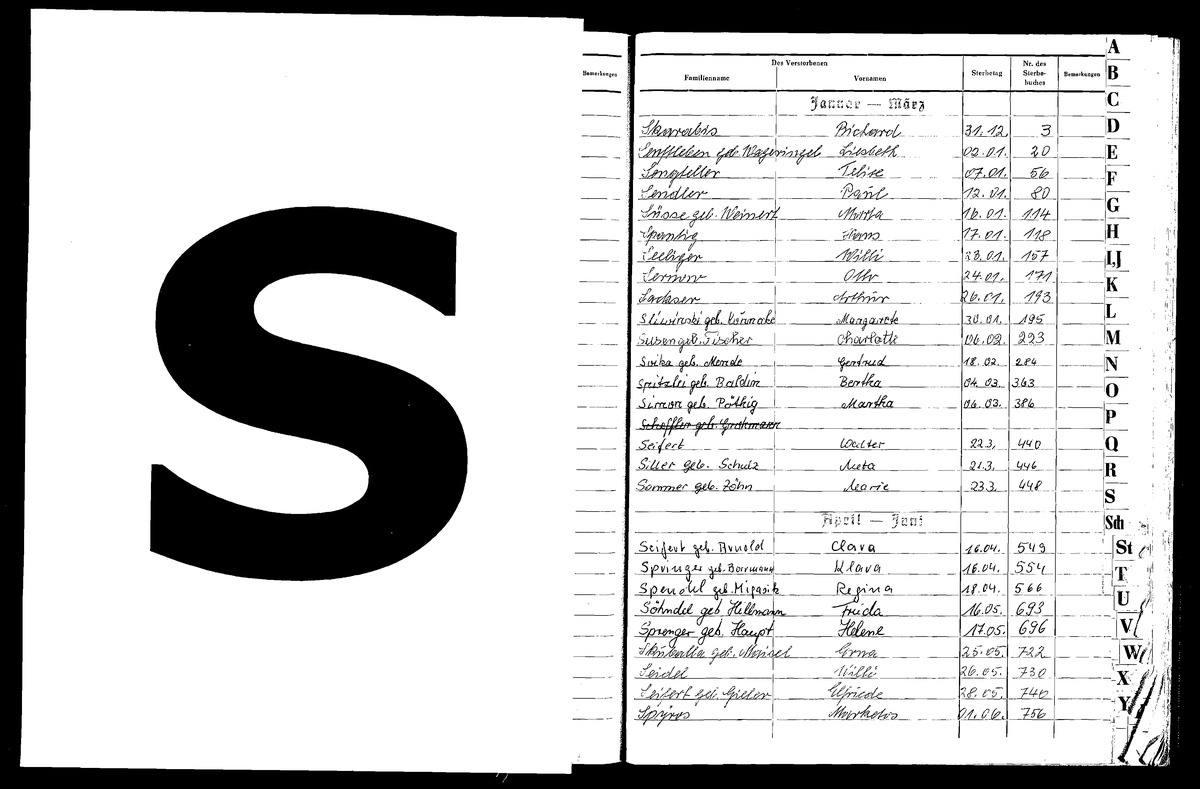 S
Bemerkungen
Des Verstorbenen
Familienname Vornamen Sterbetag Nr. des Sterbe-buches Bemerkungen
Januar — März
Skarabis Richard 31.12. 3
Senftleben geb. Liesbeth 02.01. 20
Felix 07.01. 56
Sendler Paul 12.01. 80
Süsse geb. Weinert Martha 16.01. 114
Spantig Hans 17.01. 118
Seeliger Willi 23.01. 157
Sernow Otto 24.01. 171
Sachser Arthur 26.01. 193
geb. Margarete 30.01. 195
Susen geb. Fischer Charlotte 06.02. 223
Swika geb. Mende Gertrud 18.02. 284
geb. Baldin Bertha 04.03. 363
Simon geb. Pöthig Martha 06.03. 386
Scheffler geb. Grohmann
Seifert Walter 22.3. 440
Siller geb. Schulz Meta 21.3. 446
Sommer geb. Zöhn Marie 23.3. 448
April — Juni
Seifert geb. Arnold Clara 16.04. 549
Springer geb. Borrmann Klara 16.04. 554
Spendel geb. Migasik Regina 18.04. 566
Söhndel geb Hillmann Frida 16.05. 693
Sprenger geb. Haupt Helene 17.05. 696
geb. Erna 25.05. 722
Seidel Willi 26.05. 730
Seifert geb. Gieler Elfriede 28.05. 740
Spyros Markatos 01.06. 756
A
B
C
D
E
F
G
H
I,J
K
L
M
N
O
P
Q
R
S
Sch
St
T
U
V
W
X
Y